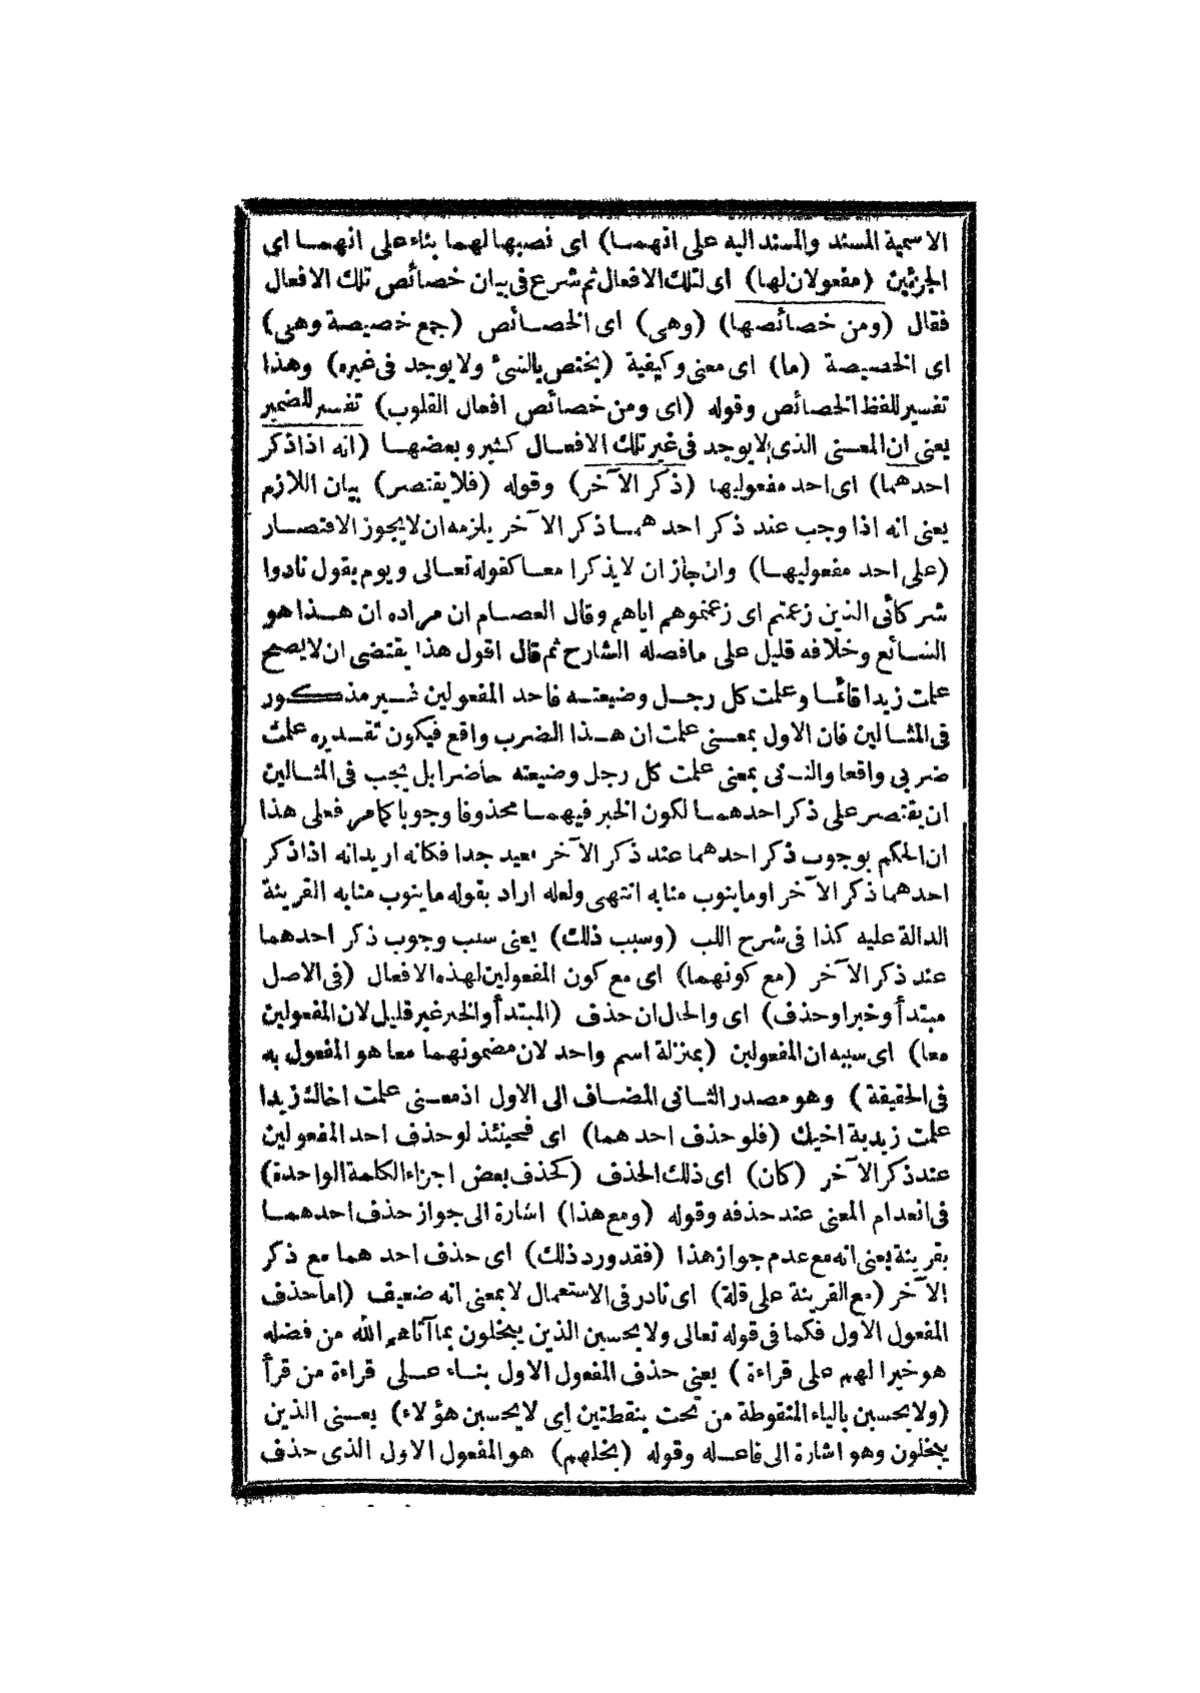 الاسمية المسند والمسند اليه على انهما) اى نصبها لهما بناء على انهما اى
الجزئين (مفعولان لها) اى لتلك الافعال ثم شرع فى بيان خصائص تلك الافعال
فقال (ومن خصائصها) (وهى) اى الخصائص (جمع خصيصة وهى)
اى الخصيصة (ما) اى معنى وكيفية (يختص بالشئ ولا يوجد فى غيره) وهذا
تفسير للفظ الخصائص وقوله (اى ومن خصائص افعال القلوب) تفسير للضمير
يعنى ان المعنى الذى لا يوجد فى غير تلك الافعال كثير وبعضها (انه اذا ذكر
احدهما) اى احد مفعوليها (ذكر الآخر) وقوله (فلا يقتصر) بيان اللازم
يعنى انه اذا وجب عند ذكر احدهما ذكر الآخر يلزمه ان لا يجوز الاقتصار
(على احد مفعوليها) وان جاز ان لا يذكرا معا كقوله تعالى ويوم يقول نادوا
شركائى الذين زعمتم اى زعمتموهم اياهم وقال العصام ان مراده ان هذا هو
الشائع وخلافه قليل على مافصله الشارح ثم قال اقول هذا يقتضى ان لا يصح
علمت زيدا قائما وعلمت كل رجل وضيعته فاحد المفعولين غير مذكور
فى المثالين فان الاول بمعنى علمت ان هذا الضرب واقع فيكون تقديره علمت
ضربى واقعا والثانى بمعنى علمت كل رجل وضيعته حاضرا بل يجب فى المثالين
ان يقتصر على ذكر احدهما لكون الخبر فيهما محذوفا وجوبا كامر فعلى هذا
ان الحكم بوجوب ذكر احدهما عند ذكر الآخر بعيد جدا فكانه اريد انه اذا ذكر
احدهما ذكر الآخر او ماينوب منابه انتهى ولعله اراد بقوله ماينوب منابه القرينة
الدالة عليه كذا فى شرح اللب (وسبب ذلك) يعنى سبب وجوب ذكر احدهما
عند ذكر الآخر (مع كونهما) اى مع كون المفعولين لهذه الافعال (فى الاصل
مبتدأ وخبرا وحذف) اى والحال ان حذف (المبتدأ والخبر غير قليل لان المفعولين
معا) اى سببه ان المفعولين (بمنزلة اسم واحد لان مضمونهما معا هو المفعول به
فى الحقيقة) وهو مصدر الثانى المضاف الى الاول اذ معنى علمت اخاك زيدا
علمت زيدية اخيك (فلو حذف احدهما) اى فحينئذ لو حذف احد المفعولين
عند ذكر الآخر (كان) اى ذلك الحذف (كحذف بعض اجزاء الكلمة الواحدة)
فى انعدام المعنى عند حذفه وقوله (ومع هذا) اشارة الى جواز حذف احدهما
بقرينة يعنى انه مع عدم جواز هذا (فقد ورد ذلك) اى حذف احدهما مع ذكر
الآخر (مع القرينة على قلة) اى نادر فى الاستعمال لا بمعنى انه ضعيف (اما حذف
المفعول الاول فكما فى قوله تعالى ولا يحسبن الذين يبخلون بما آتاهم الله من فضله
هو خيرا لهم على قراءة) يعنى حذف المفعول الاول بناء على قراءة من قرأ
(ولا يحسبن بالياء المنقوطة من تحت بنقطتين اى لا يحسبن هؤلاء) يعنى الذين
يبخلون وهو اشارة الى فاعله وقوله (بخلهم) هو المفعول الاول الذى حذف